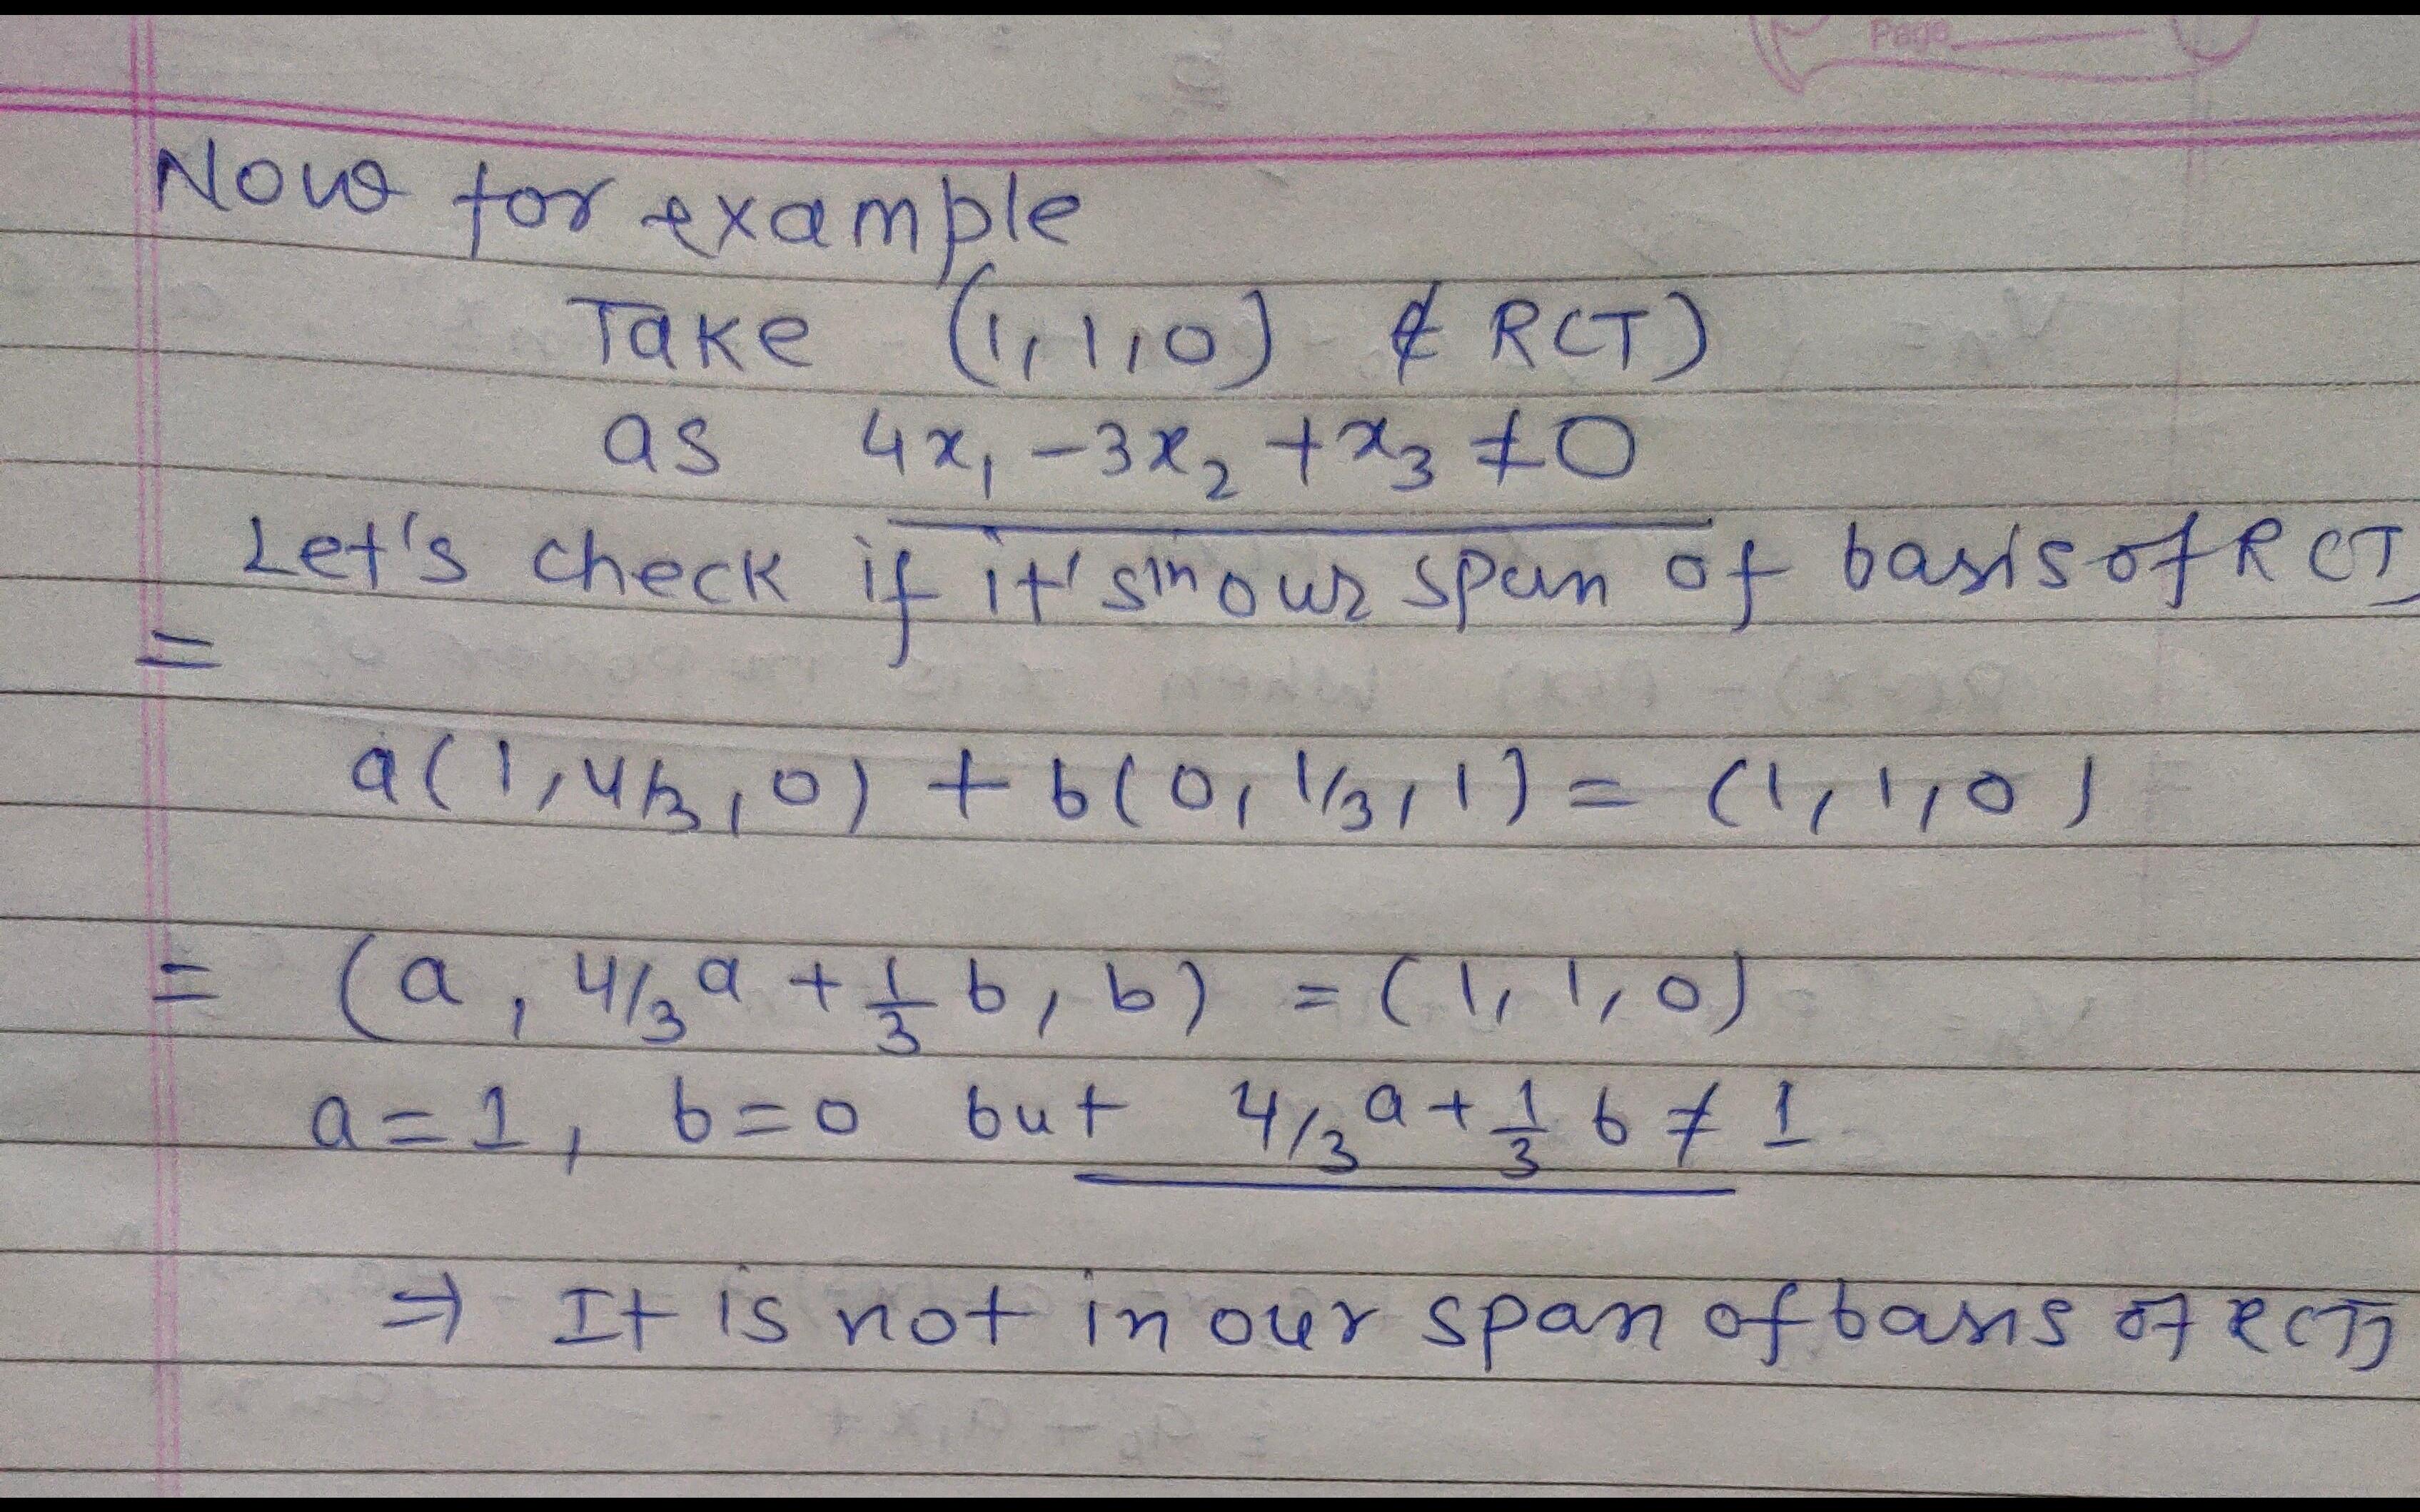 Page
Now for example
Take (1,1,0) ∉ R(T)
as 4x₁ -3x₂ +x₃ ≠0
Let's check if it's in our span of basis of R(T
=
a(1,4/3,0) + b(0,1/3,1) = (1,1,0)
= (a, 4/3a + 1/3 b, b) = (1,1,0)
a=1, b=0 but 4/3a + 1/3 b ≠ 1
⇒ It is not in our span of basis of R(T)